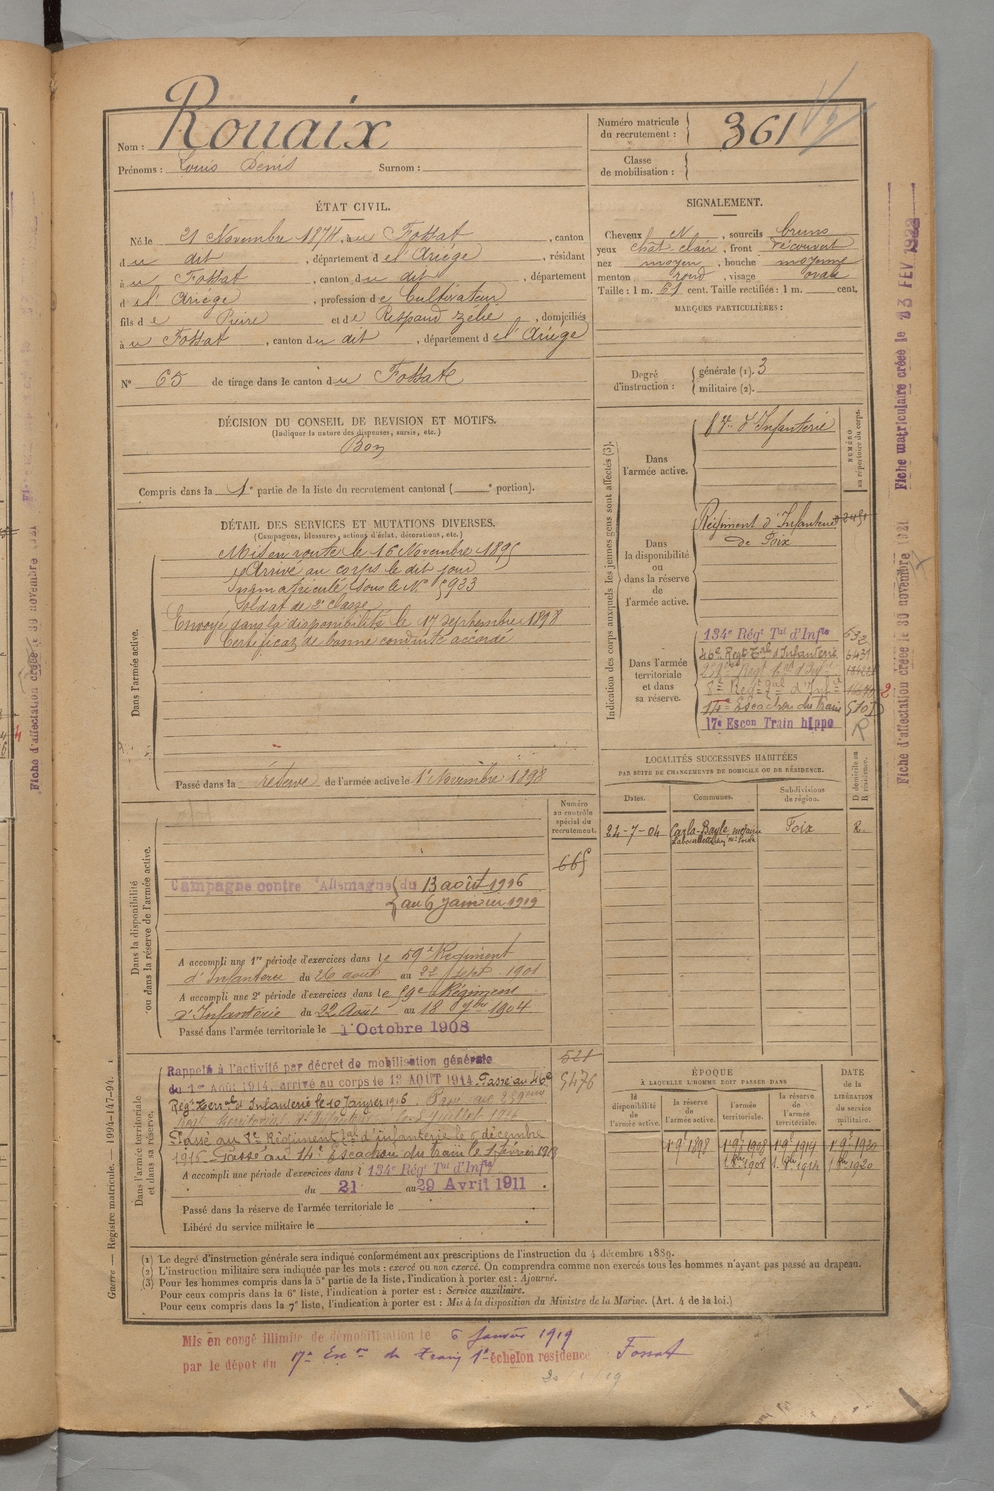 Nom : Rouaix
Prénoms : Louis Denis Surnom :
Numéro matricule du recrutement : 361
Classe de mobilisation :
ÉTAT CIVIL.
Né le 21 Novembre 1874, à u Fossat, canton
du dit, département de l'Ariège, résidant
à u Fossat, canton du dit, département
d e l'Ariège, profession de Cultivateur
fils de Pierre et de Respaud Zélie, domiciliés
à u Fossat, canton du dit, département de l'Ariège
N° 65 de tirage dans le canton du Fossat
SIGNALEMENT.
Cheveux N, sourcils bruns
yeux chât clair, front découvert
nez moyen, bouche moyenne
menton rond, visage ovale
Taille : 1 m. 61 cent. Taille rectifiée : 1 m. cent.
MARQUES PARTICULIÈRES :
Degré d'instruction : générale (1). 3
militaire (2).
DÉCISION DU CONSEIL DE REVISION ET MOTIFS.
(Indiquer la nature des dispenses, sursis, etc.)
Bon
Compris dans la 1e partie de la liste du recrutement cantonal ( e portion).
DÉTAIL DES SERVICES ET MUTATIONS DIVERSES.
(Campagnes, blessures, actions d'éclat, décorations, etc.)
Dans l'armée active.
Mis en route le 16 Novembre 1895
Arrivé au corps le dit jour
Immatriculé sous le N° 5933
Soldat de 2e classe
Envoyé dans la disponibilité le 17 septembre 1898
Certificat de bonne conduite accordé
Passé dans la réserve de l'armée active le 1r Novembre 1898
Indication des corps auxquels les jeunes gens sont affectés (3).
NUMÉRO au répertoire du corps.
Dans l'armée active.
d'Infanterie
Dans la disponibilité ou dans la réserve de l'armée active.
Régiment d'Infanterie
de Foix
Dans l'armée territoriale et dans sa réserve.
134e Régt Tal d'Infie
46e Regt Tal d'Infanterie 6431
14e Escadron du train
17e Escon Train hippo R
LOCALITÉS SUCCESSIVES HABITÉES
PAR SUITE DE CHANGEMENTS DE DOMICILE OU DE RÉSIDENCE.
Dates. Communes. Subdivisions de région. D. domicile ou R. résidence.
24-7-04 Carla-Bayle Foix R.
Dans la disponibilité ou dans la réserve de l'armée active.
Numéro au contrôle spécial du recrutement.
665
Campagne contre l'Allemagne du 13 août 1916
au 6 janvier 1919
A accompli une 1re période d'exercices dans le 59e Régiment
d'Infanterie du 26 août au 22 Sept. 1901
A accompli une 2e période d'exercices dans le 59e Régiment
d'Infanterie du 22 Août au 18 7bre 1904
Passé dans l'armée territoriale le 1r Octobre 1908
Dans l'armée territoriale et dans sa réserve.
521
5476
Rappelé à l'activité par décret de mobilisation générale
du 1er Août 1914, arrivé au corps le 13 AOUT 1914. Passé au 46e
Régt Terral d'Infanterie le 10 Janvier 1916. Passé au
Passé au Régiment d'infanterie le 6 décembre
1916 Passé au 14e Escadron du train le 1er février 1918
A accompli une période d'exercices dans l 134e Régt Tal d'Infie
du 21 au 29 Avril 1911.
Passé dans la réserve de l'armée territoriale le
Libéré du service militaire le
ÉPOQUE
À LAQUELLE L'HOMME DOIT PASSER DANS
la disponibilité de l'armée active. la réserve de l'armée active. l'armée territoriale. la réserve de l'armée territoriale.
DATE de la LIBÉRATION du service militaire.
1r 9bre 1898 1r 9bre 1908 1r 9bre 1914 1r 9bre 1920
1r 8bre 1908 1r 8bre 1914 1r 8bre 1920
(1) Le degré d'instruction générale sera indiqué conformément aux prescriptions de l'instruction du 4 décembre 1889.
(2) L'instruction militaire sera indiquée par les mots : exercé ou non exercé. On comprendra comme non exercés tous les hommes n'ayant pas passé au drapeau.
(3) Pour les hommes compris dans la 5e partie de la liste, l'indication à porter est : Ajourné.
Pour ceux compris dans la 6e liste, l'indication à porter est : Service auxiliaire.
Pour ceux compris dans la 7e liste, l'indication à porter est : Mis à la disposition du Ministre de la Marine. (Art. 4 de la loi.)
Mis en congé illimité de démobilisation le 6 Janvier 1919
par le dépôt du 17e Eon du train 1er échelon résidence Fossat
Guerre. — Registre matricule. 1994-147-94.
Fiche matriculaire créée le 23 FEV 1922
Fiche d'affectation créée le 30 novembre 1921
Fiche d'affectation créée le 30 novembre 1921